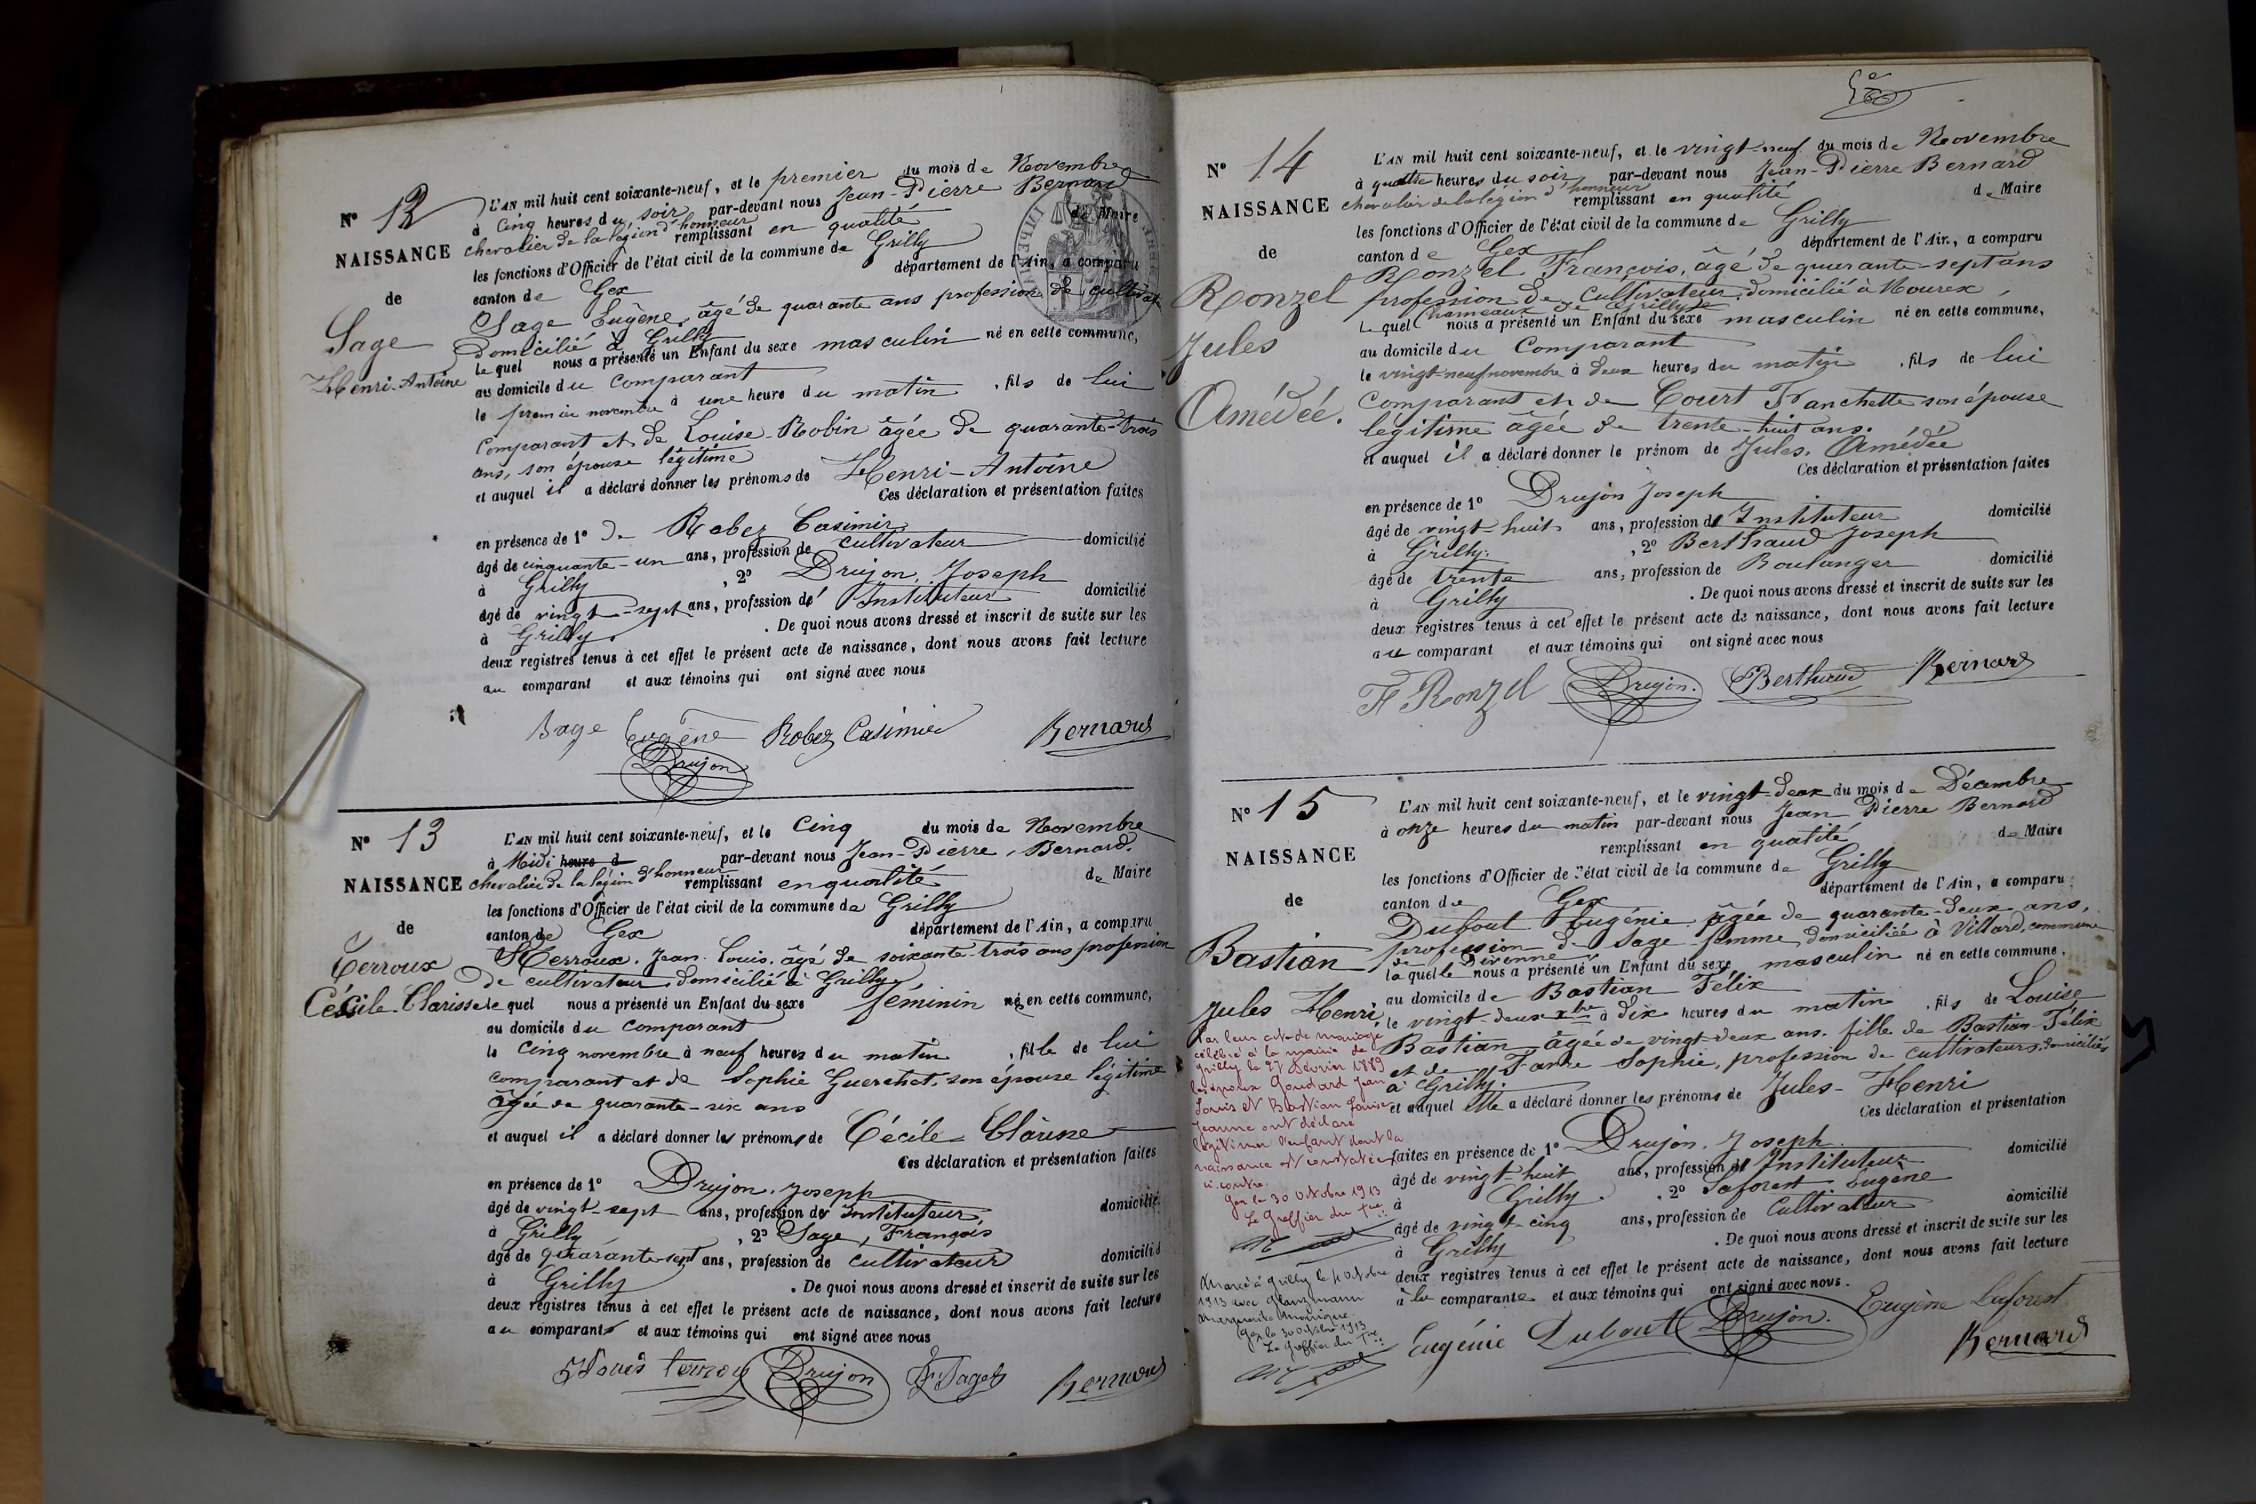 N° 12
NAISSANCE
de
Sage
Henri-Antoine
L'AN mil huit cent soixante-neuf, et le premier du mois de Novembre
à Cinq heures du soir par-devant nous Jean-Pierre Bernard
chevalier de la légion d'honneur remplissant en qualité de Maire
les fonctions d'Officier de l'état civil de la commune de Grilly
canton de Gex département de l'Ain, a comparu
Sage Eugène, âgé de quarante ans profession de cultivateur
domicilié à Grilly
le quel nous a présenté un Enfant du sexe masculin né en cette commune,
au domicile du Comparant
le premier novembre à une heure du matin, fils de lui
Comparant et de Louise Robin âgée de quarante-trois
ans, son épouse légitime
et auquel il a déclaré donner les prénoms de Henri-Antoine
Ces déclaration et présentation faites
en présence de 1° De Robez Casimir
âgé de cinquante-un ans, profession de cultivateur domicilié
à Grilly, 2° Drujon, Joseph
âgé de vingt-sept ans, profession d' Instituteur domicilié
à Grilly. De quoi nous avons dressé et inscrit de suite sur les
deux registres tenus à cet effet le présent acte de naissance, dont nous avons fait lecture
au comparant et aux témoins qui ont signé avec nous
Sage Eugène Robez Casimir Bernard
Drujon
N° 13
NAISSANCE
de
Terroux
Cécile-Clarisse
L'AN mil huit cent soixante-neuf, et le Cinq du mois de Novembre
à Midi heure d par-devant nous Jean-Pierre, Bernard.
chevalier de la légion d'honneur remplissant en qualité de Maire
les fonctions d'Officier de l'état civil de la commune de Grilly
canton de Gex département de l'Ain, a comparu
Terroux. Jean Louis. âgé de soixante-trois ans profession
de cultivateur domicilié à Grilly
le quel nous a présenté un Enfant du sexe féminin né en cette commune,
au domicile du Comparant
le Cinq novembre à neuf heures du matin, fille de lui
comparant et de Sophie Guerchet, son épouse légitime
âgée de quarante-six ans
et auquel il a déclaré donner les prénoms de Cécile-Clarisse
Ces déclaration et présentation faites
en présence de 1° Drujon. Joseph
âgé de vingt-sept ans, profession d' Instituteur domicilié
à Grilly, 2° Sage, François
âgé de quarante-sept ans, profession de cultivateur domicilié
à Grilly. De quoi nous avons dressé et inscrit de suite sur les
deux registres tenus à cet effet le présent acte de naissance, dont nous avons fait lecture
au comparant et aux témoins qui ont signé avec nous
Drujon F. Sage Bernard
N° 14
NAISSANCE
de
Ronzel
Jules
Amédéé.
L'AN mil huit cent soixante-neuf, et le vingt-neuf du mois de Novembre
à quatre heures du soir par-devant nous Jean-Pierre Bernard
chevalier de la légion d'honneur remplissant en qualité de Maire
les fonctions d'Officier de l'état civil de la commune de Grilly
canton de Gex département de l'Ain, a comparu
Ronzel François, âgé de quarante-sept ans
profession de Cultivateur domicilié à Mourex
hameaux de Grilly
le quel nous a présenté un Enfant du sexe masculin né en cette commune,
au domicile du Comparant
le vingt-neuf novembre à deux heures du matin, fils de lui
Comparant et de Court Franchette son épouse
légitime âgée de trente-huit ans.
et auquel il a déclaré donner le prénom de Jules. Amédée
Ces déclaration et présentation faites
en présence de 1° Drujon Joseph
âgé de vingt-huit ans, profession d' Instituteur domicilié
à Grilly, 2° Berthaud Joseph
âgé de trente ans, profession de Boulanger domicilié
à Grilly. De quoi nous avons dressé et inscrit de suite sur les
deux registres tenus à cet effet le présent acte de naissance, dont nous avons fait lecture
au comparant et aux témoins qui ont signé avec nous
F Ronzel Drujon. Berthaud Bernard
N° 15
NAISSANCE
de
Bastian
Jules Henri
Par leur acte de mariage
célébré à la mairie de
Grilly le 27 février 1889
les époux Goudard Jean
Louis et Bastian Louise
Jeanne ont déclaré
légitimer l'enfant dont la
naissance est constatée
ci-contre.
Gex le 30 octobre 1913
Le Greffier du Tral
Marié à Grilly le 11 octobre
1913 avec Glanzmann
Marguerite Monique
Gex le 30 octobre 1913
Le Greffier du Tral
L'AN mil huit cent soixante-neuf, et le vingt-deux du mois de Décembre
à onze heures du matin par-devant nous Jean Pierre Bernard
remplissant en qualité de Maire
les fonctions d'Officier de l'état civil de la commune de Grilly
canton de Gex département de l'Ain, a comparu
Dubout Eugénie âgée de quarante-deux ans,
profession de Sage-femme domiciliée à Villard, commune
de Divonne
laquelle nous a présenté un Enfant du sexe masculin né en cette commune,
au domicile de Bastian Félix
le vingt-deux xbre à dix heures du matin, fils de Louise
Bastian âgée de vingt-deux ans. fille de Bastian Félix
et de Favre Sophie, profession de cultivateurs, domiciliés
à Grilly.
et auquel elle a déclaré donner les prénoms de Jules-Henri
Ces déclaration et présentation
faites en présence de 1° Drujon. Joseph
âgé de vingt-huit ans, profession d' Instituteur domicilié
à Grilly. 2° Laforest Eugène
âgé de vingt-cinq ans, profession de Cultivateur domicilié
à Grilly. De quoi nous avons dressé et inscrit de suite sur les
deux registres tenus à cet effet le présent acte de naissance, dont nous avons fait lecture
à la comparante et aux témoins qui ont signé avec nous.
Eugénie Dubout Drujon. Eugène Laforest
Bernard